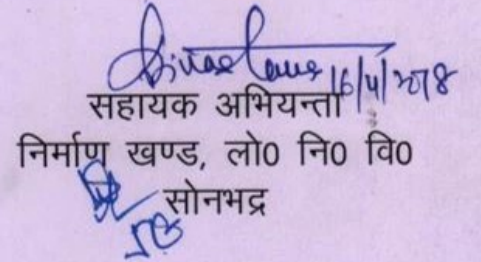 16/4/2018
सहायक अभियन्ता
निर्माण खण्ड, लो0 नि0 वि0
सोनभद्र